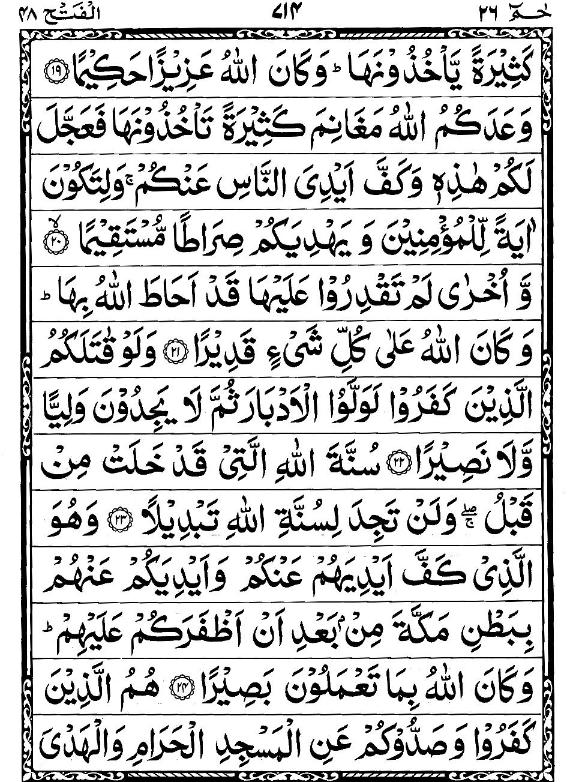 حٰمٓ ٢٦ ٧١٤ الْفَتْح ٤٨
كَثِيْرَةً يَّاْخُذُوْنَهَا ؕ وَكَانَ اللّٰهُ عَزِيْزًا حَكِيْمًا ﴿١٩﴾
وَعَدَكُمُ اللّٰهُ مَغَانِمَ كَثِيْرَةً تَاْخُذُوْنَهَا فَعَجَّلَ
لَكُمْ هٰذِهٖ وَكَفَّ اَيْدِىَ النَّاسِ عَنْكُمْ ۚ وَلِتَكُوْنَ
اٰيَةً لِّلْمُؤْمِنِيْنَ وَ يَهْدِيَكُمْ صِرَاطًا مُّسْتَقِيْمًا ۙ﴿٢٠﴾
وَّ اُخْرٰى لَمْ تَقْدِرُوْا عَلَيْهَا قَدْ اَحَاطَ اللّٰهُ بِهَا ؕ
وَ كَانَ اللّٰهُ عَلٰى كُلِّ شَىْءٍ قَدِيْرًا ﴿٢١﴾ وَلَوْ قٰتَلَكُمُ
الَّذِيْنَ كَفَرُوْا لَوَلَّوُا الْاَدْبَارَ ثُمَّ لَا يَجِدُوْنَ وَلِيًّا
وَّلَا نَصِيْرًا ﴿٢٢﴾ سُنَّةَ اللّٰهِ الَّتِىْ قَدْ خَلَتْ مِنْ
قَبْلُ ۖۚ وَلَنْ تَجِدَ لِسُنَّةِ اللّٰهِ تَبْدِيْلًا ﴿٢٣﴾ وَهُوَ
الَّذِىْ كَفَّ اَيْدِيَهُمْ عَنْكُمْ وَاَيْدِيَكُمْ عَنْهُمْ
بِبَطْنِ مَكَّةَ مِنْۢ بَعْدِ اَنْ اَظْفَرَكُمْ عَلَيْهِمْ ؕ
وَكَانَ اللّٰهُ بِمَا تَعْمَلُوْنَ بَصِيْرًا ﴿٢٤﴾ هُمُ الَّذِيْنَ
كَفَرُوْا وَصَدُّوْكُمْ عَنِ الْمَسْجِدِ الْحَرَامِ وَالْهَدْىَ